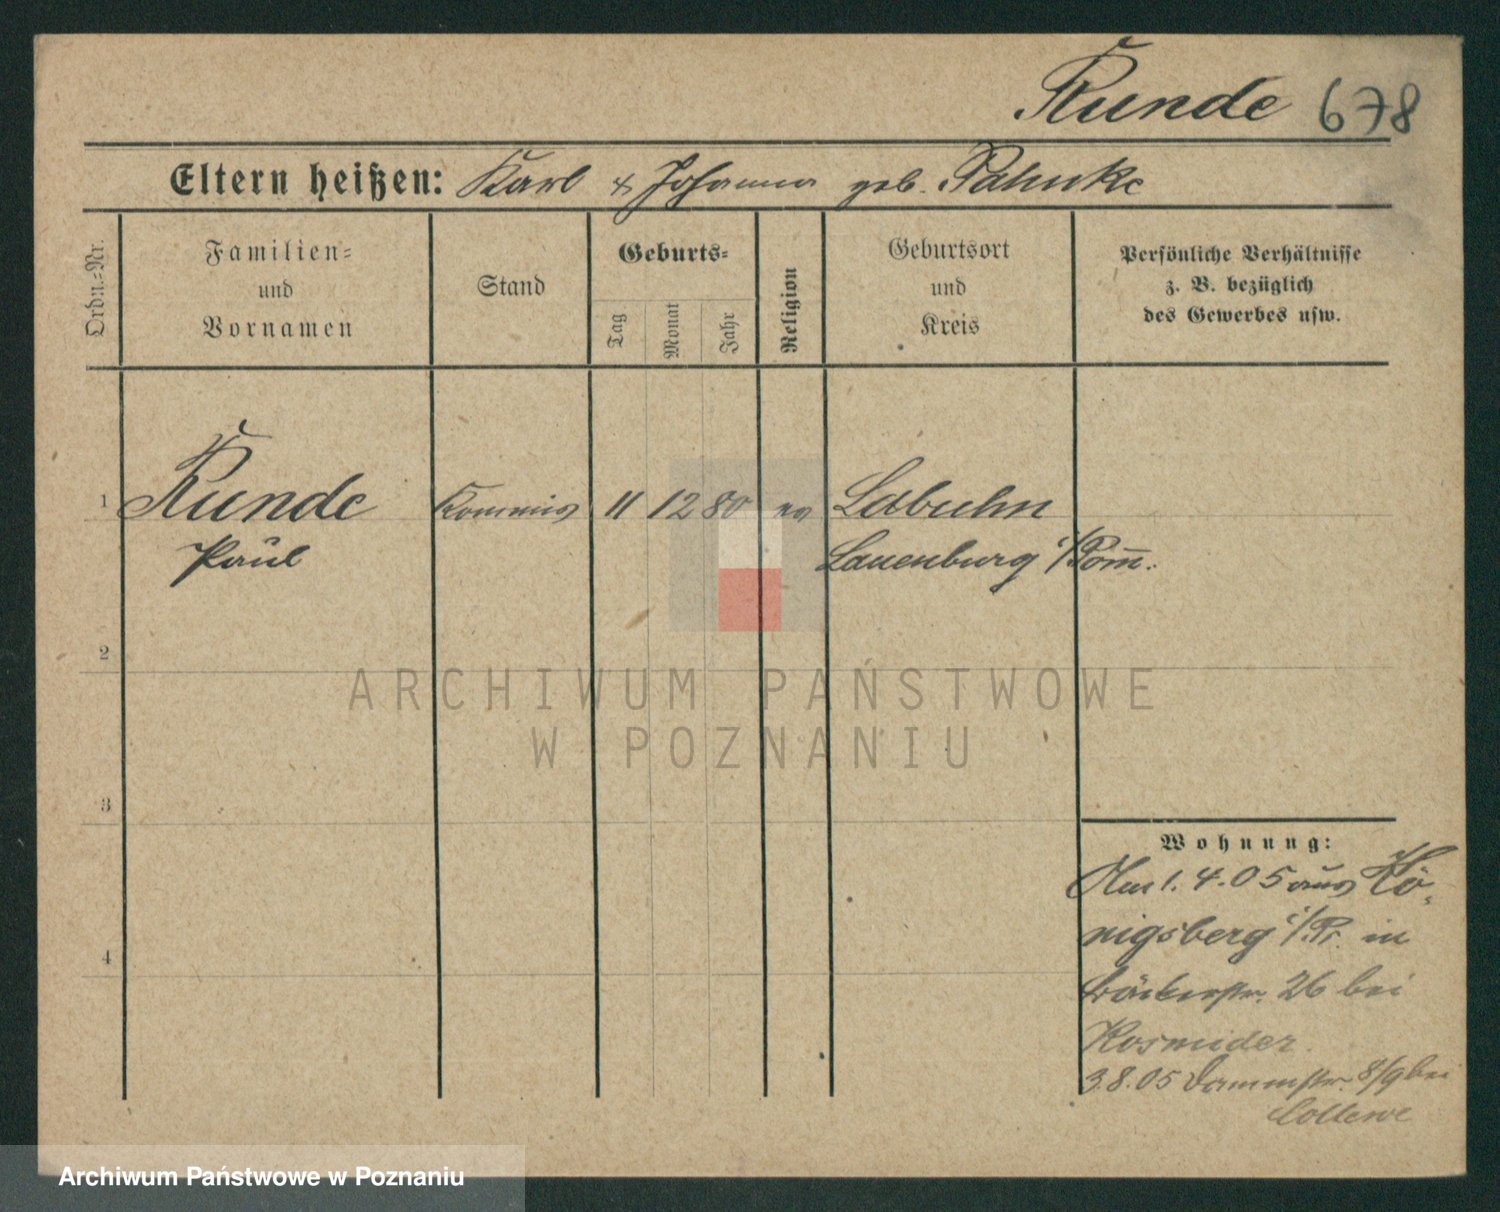 Kunde 678
Eltern heißen: Karl & Johanna geb. Pahnke
Ordn.=Nr.
Familien=
und
Vornamen
Stand
Geburts=
Tag
Monat
Jahr
Religion
Geburtsort
und
Kreis
Persönliche Verhältnisse
z. B. bezüglich
des Gewerbes usw.
1 Kunde Kommis 11 12 80 ev Labuhn
Paul Lauenburg i/Pom̄.
2
3
4
Wohnung:
Am 1. 4. 05 aus Kö-
nigsberg i/Pr. in
Bäckerstr. 26 bei
Kosmider.
3.8.05 Dammstr. 8/9 bei
ARCHIWUM PAŃSTWOWE
W POZNANIU
Archiwum Państwowe w Poznaniu